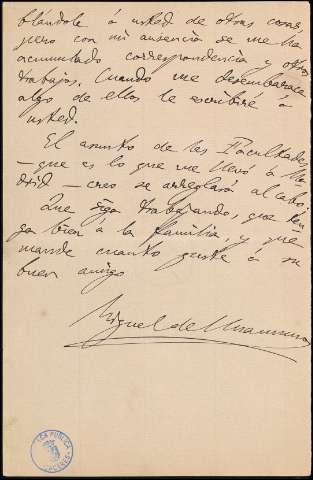 blándole á usted de otras cosas,
pero con mi ausencia se me ha
acumulado correspondencia y otros
trabajos. Cuando me desembarace
algo de ellos le escribiré á
usted.
El asunto de las Facultades
—que es lo que me llevó á Ma-
drid— creo se arreglará al cabo.
Que siga trabajando, que ten-
ga bien á la familia y que
mande cuanto guste á su
buen amigo
Miguel de Unamuno
CA PUBLICA
CACERES